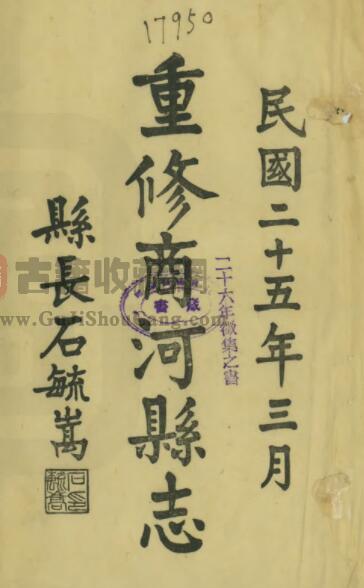 17950
民國二十五年三月
重修商河縣志
縣長石毓嵩
二十六年徵集之書
藏書
古籍收藏网
www.GuJiShouCang.com